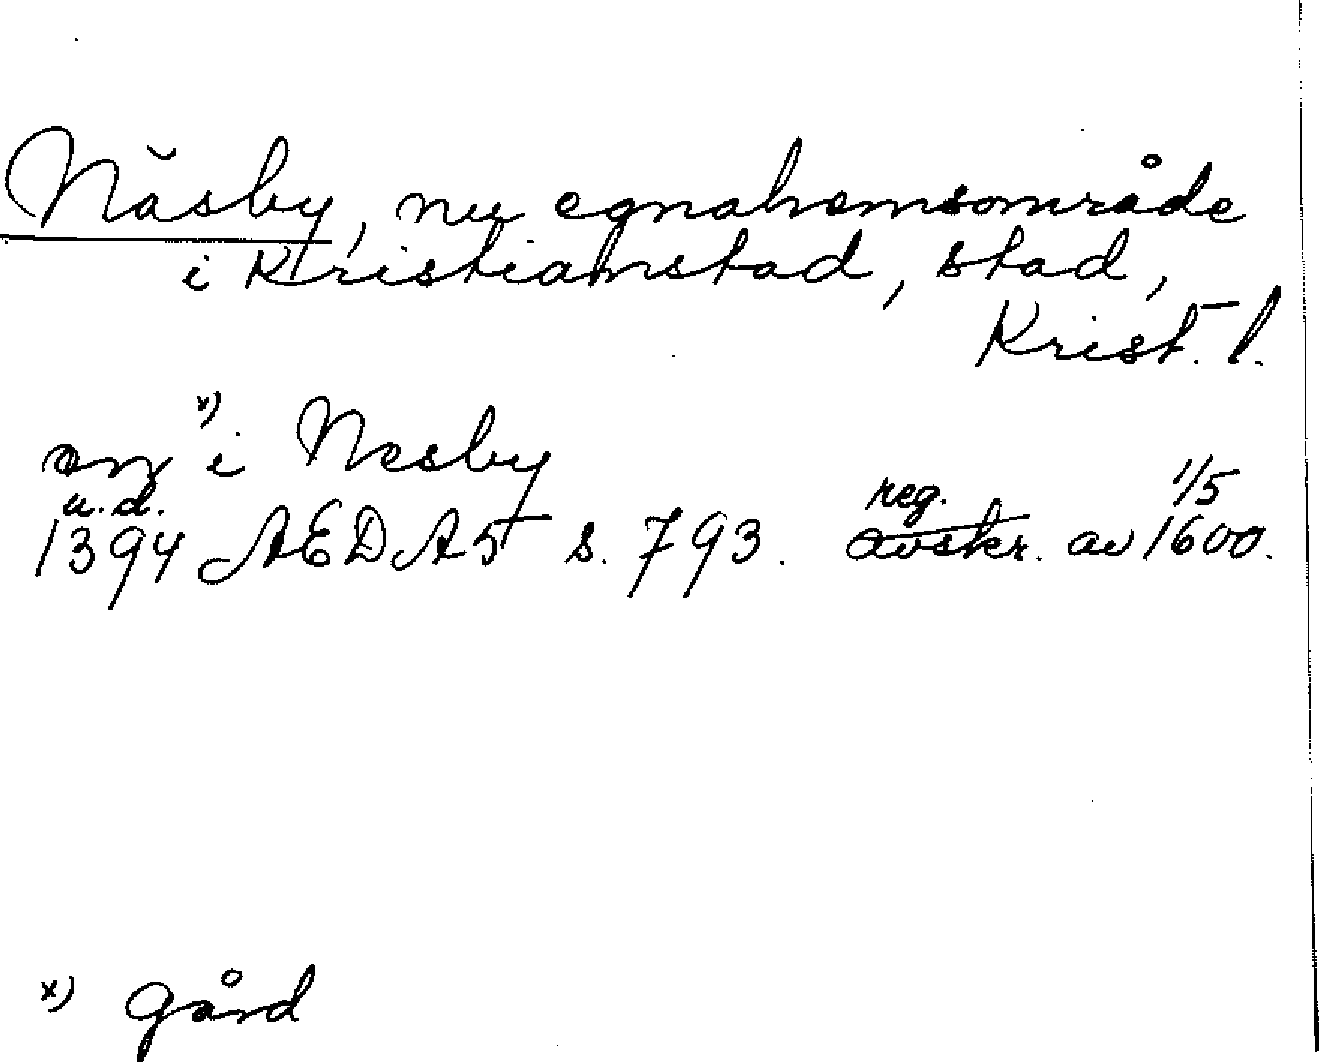 Näsby, nu egnahemsområde
i Kristianstad, stad,
Krist. l.
x) i Nesby
u.d.
1394 AEDA5 s. 793. reg. avskr. av 1/5 1600.
x) gård